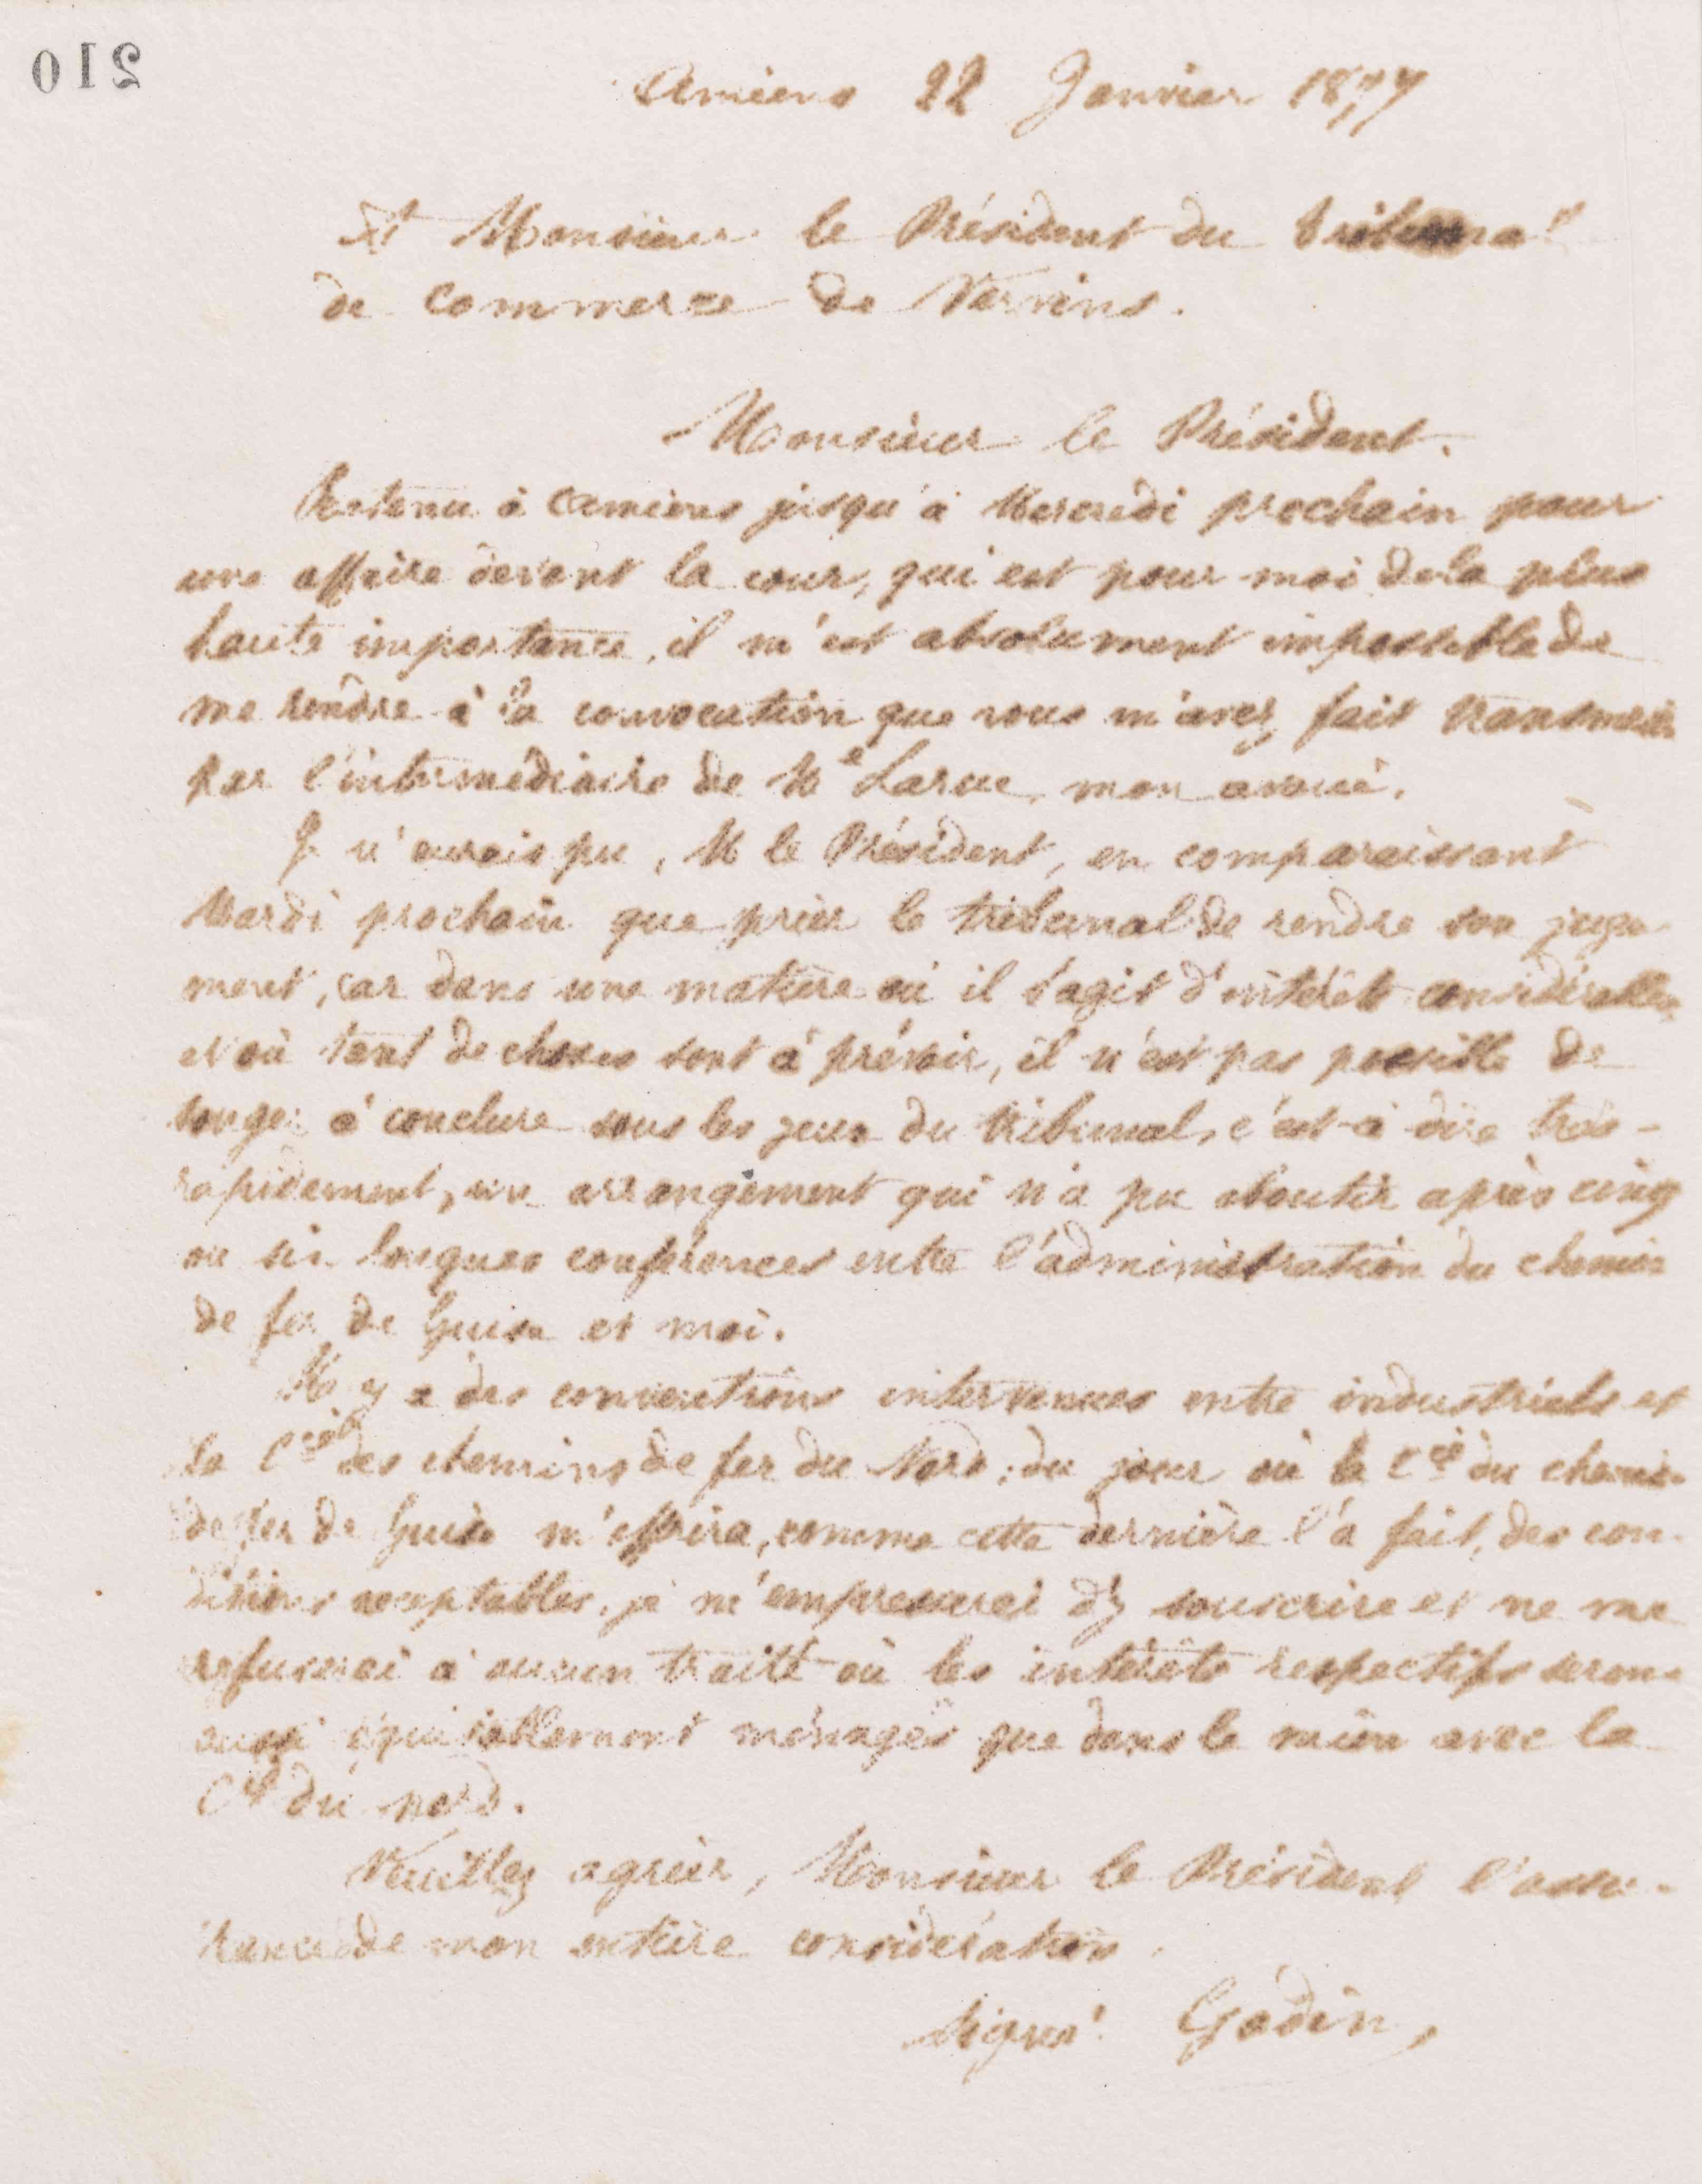 210
Amiens 22 Janvier 1877
A Monsieur le Président du tribunal
de Commerce de Vervins.
Monsieur le Président.
Retenu à Amiens jusqu'à Mercredi prochain pour
une affaire devant la cour, qui est pour moi de la plus
haute importance, il m'est absolument impossible de
me rendre à la convocation que vous m'avez fait transmettre
par l'intermédiaire de Me Larue, mon avoué.
Je n'aurais pu, M le Président, en comparaissant
Mardi prochain que prier le tribunal de rendre son juge-
ment, car dans une matière où il s'agit d'intérêts considérables
et où tant de choses sont à prévoir, il n'est pas possible de
songer à conclure sous les yeux du tribunal, c'est-à-dire très-
rapidement, un arrangement qui n'a pu aboutir après cinq
ou six longues conférences entre l'administration du chemin
de fer de Guise et moi.
Il y a des conventions intervenues entre industriels et
la Cie des chemins de fer du Nord; du jour où la Cie du chemin
de fer de Guise m'offrira, comme cette dernière l'a fait, des con-
ditions acceptables, je m'empresserai d'y souscrire et ne me
refuserai à aucun traité où les intérêts respectifs seront
aussi équitablement ménagés que dans le mien avec la
Cie du Nord.
Veuillez agréer, Monsieur le Président l'assu-
rance de mon entière considération.
Signé: Godin,